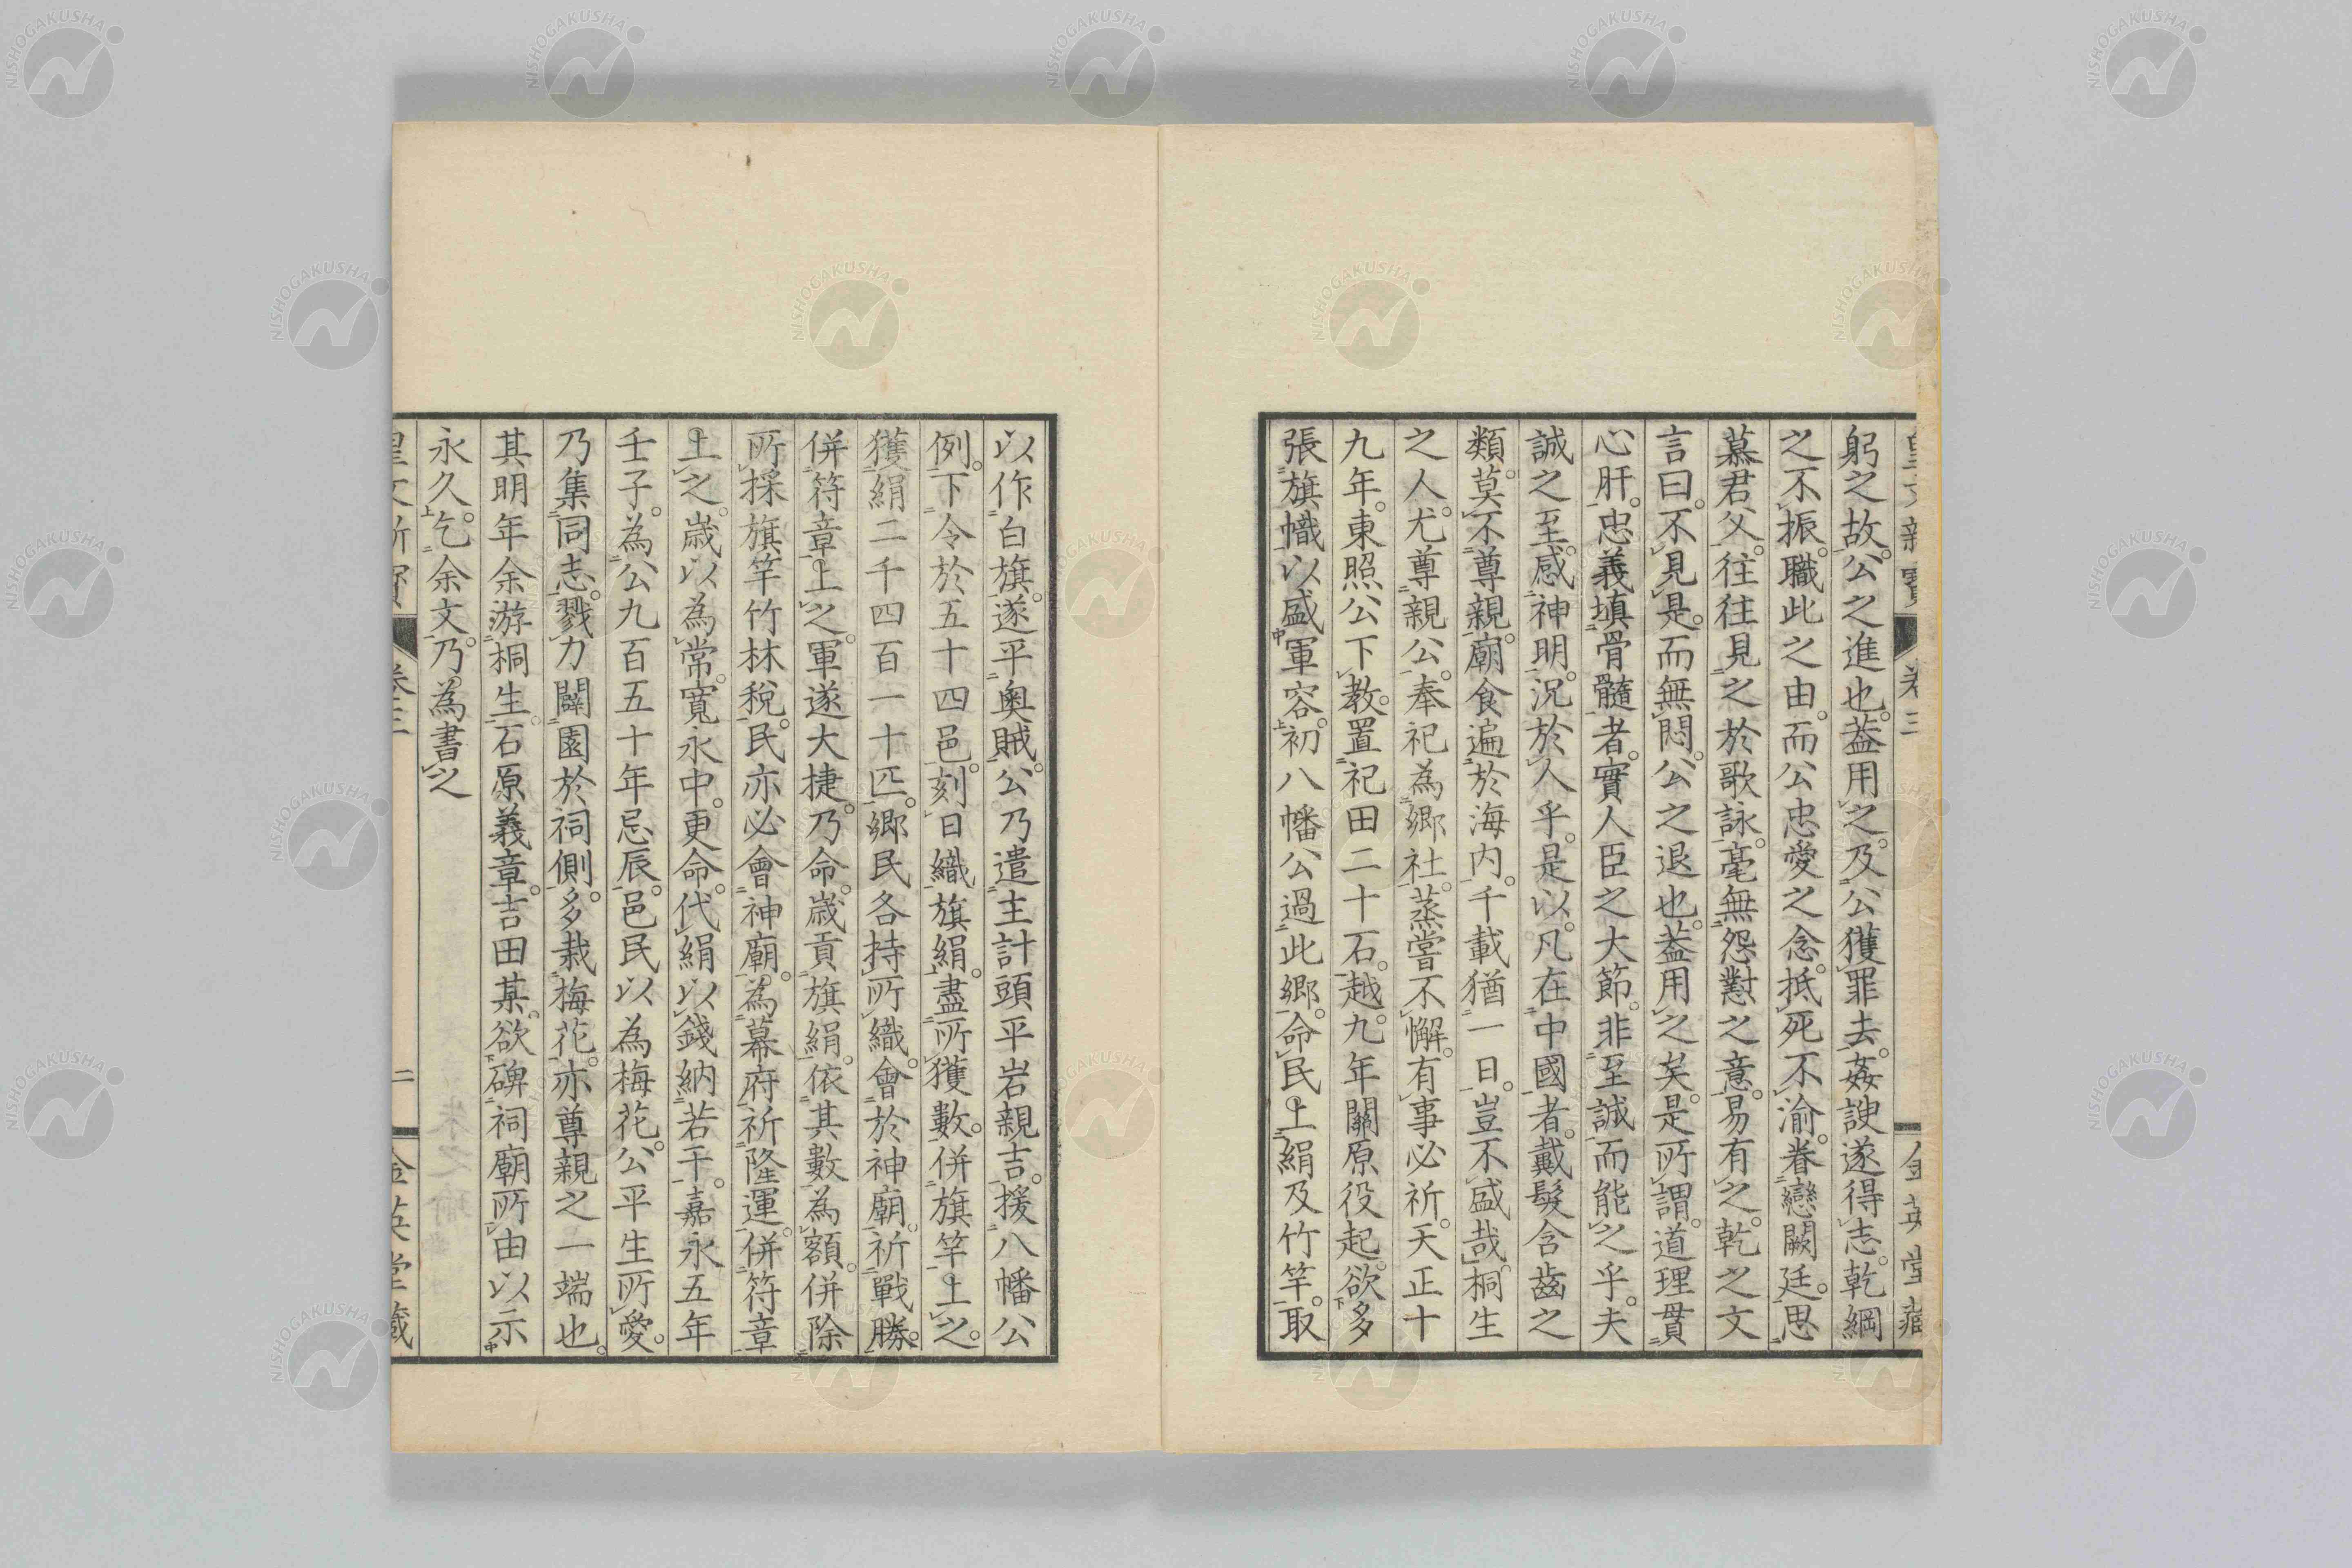 躬之故。公之進也。葢用之。及公獲罪去。姦諛遂得志。乾綱
之不振。職此之由。而公忠愛之念。抵死不渝。眷戀闕廷。思
慕君父。往往見之於歌詠。毫無怨懟之意。易有之。乾之文
言曰。不見是。而無悶。公之退也。葢用之矣。是所謂。道理貫
心肝。忠義填骨髓者。實人臣之大節。非至誠而能之乎。夫
誠之至。感神明。況於人乎。是以。凡在中國者。戴髮含齒之
類。莫不尊親。廟食遍於海内。千載猶一日。豈不盛哉。桐生
之人。尤尊親公。奉祀為鄉社。蒸嘗不懈。有事必祈。天正十
九年。東照公下教。置祀田二十石。越九年。關原役起。欲多
張旗幟以盛軍容。初八幡公過此鄉。命民上絹及竹竿。取
以作白旗。遂平奥賊。公乃遣主計頭平岩親吉。援八幡公
例。下令於五十四邑。刻日織旗絹。盡所獲數。併旗竿上之。
獲絹二千四百一十匹。鄉民各持所織。會於神廟。祈戰勝。
併符章上之。軍遂大捷。乃命。歳貢旗絹。依其數為額。併除
所採旗竿竹林税。民亦必會神廟。為幕府祈隆運。併符章
上之。歳以為常。寛永中。更命代絹以錢納若干。嘉永五年
壬子。為公九百五十年忌辰。邑民以為梅花。公平生所愛。
乃集同志。戮力闢園於祠側。多栽梅花。亦尊親之一端也。
其明年余游桐生。石原義章。吉田某。欲碑祠廟所由以示
永久。乞余文。乃為書之
卷三
二
金英堂藏
NISHOGAKUSHA